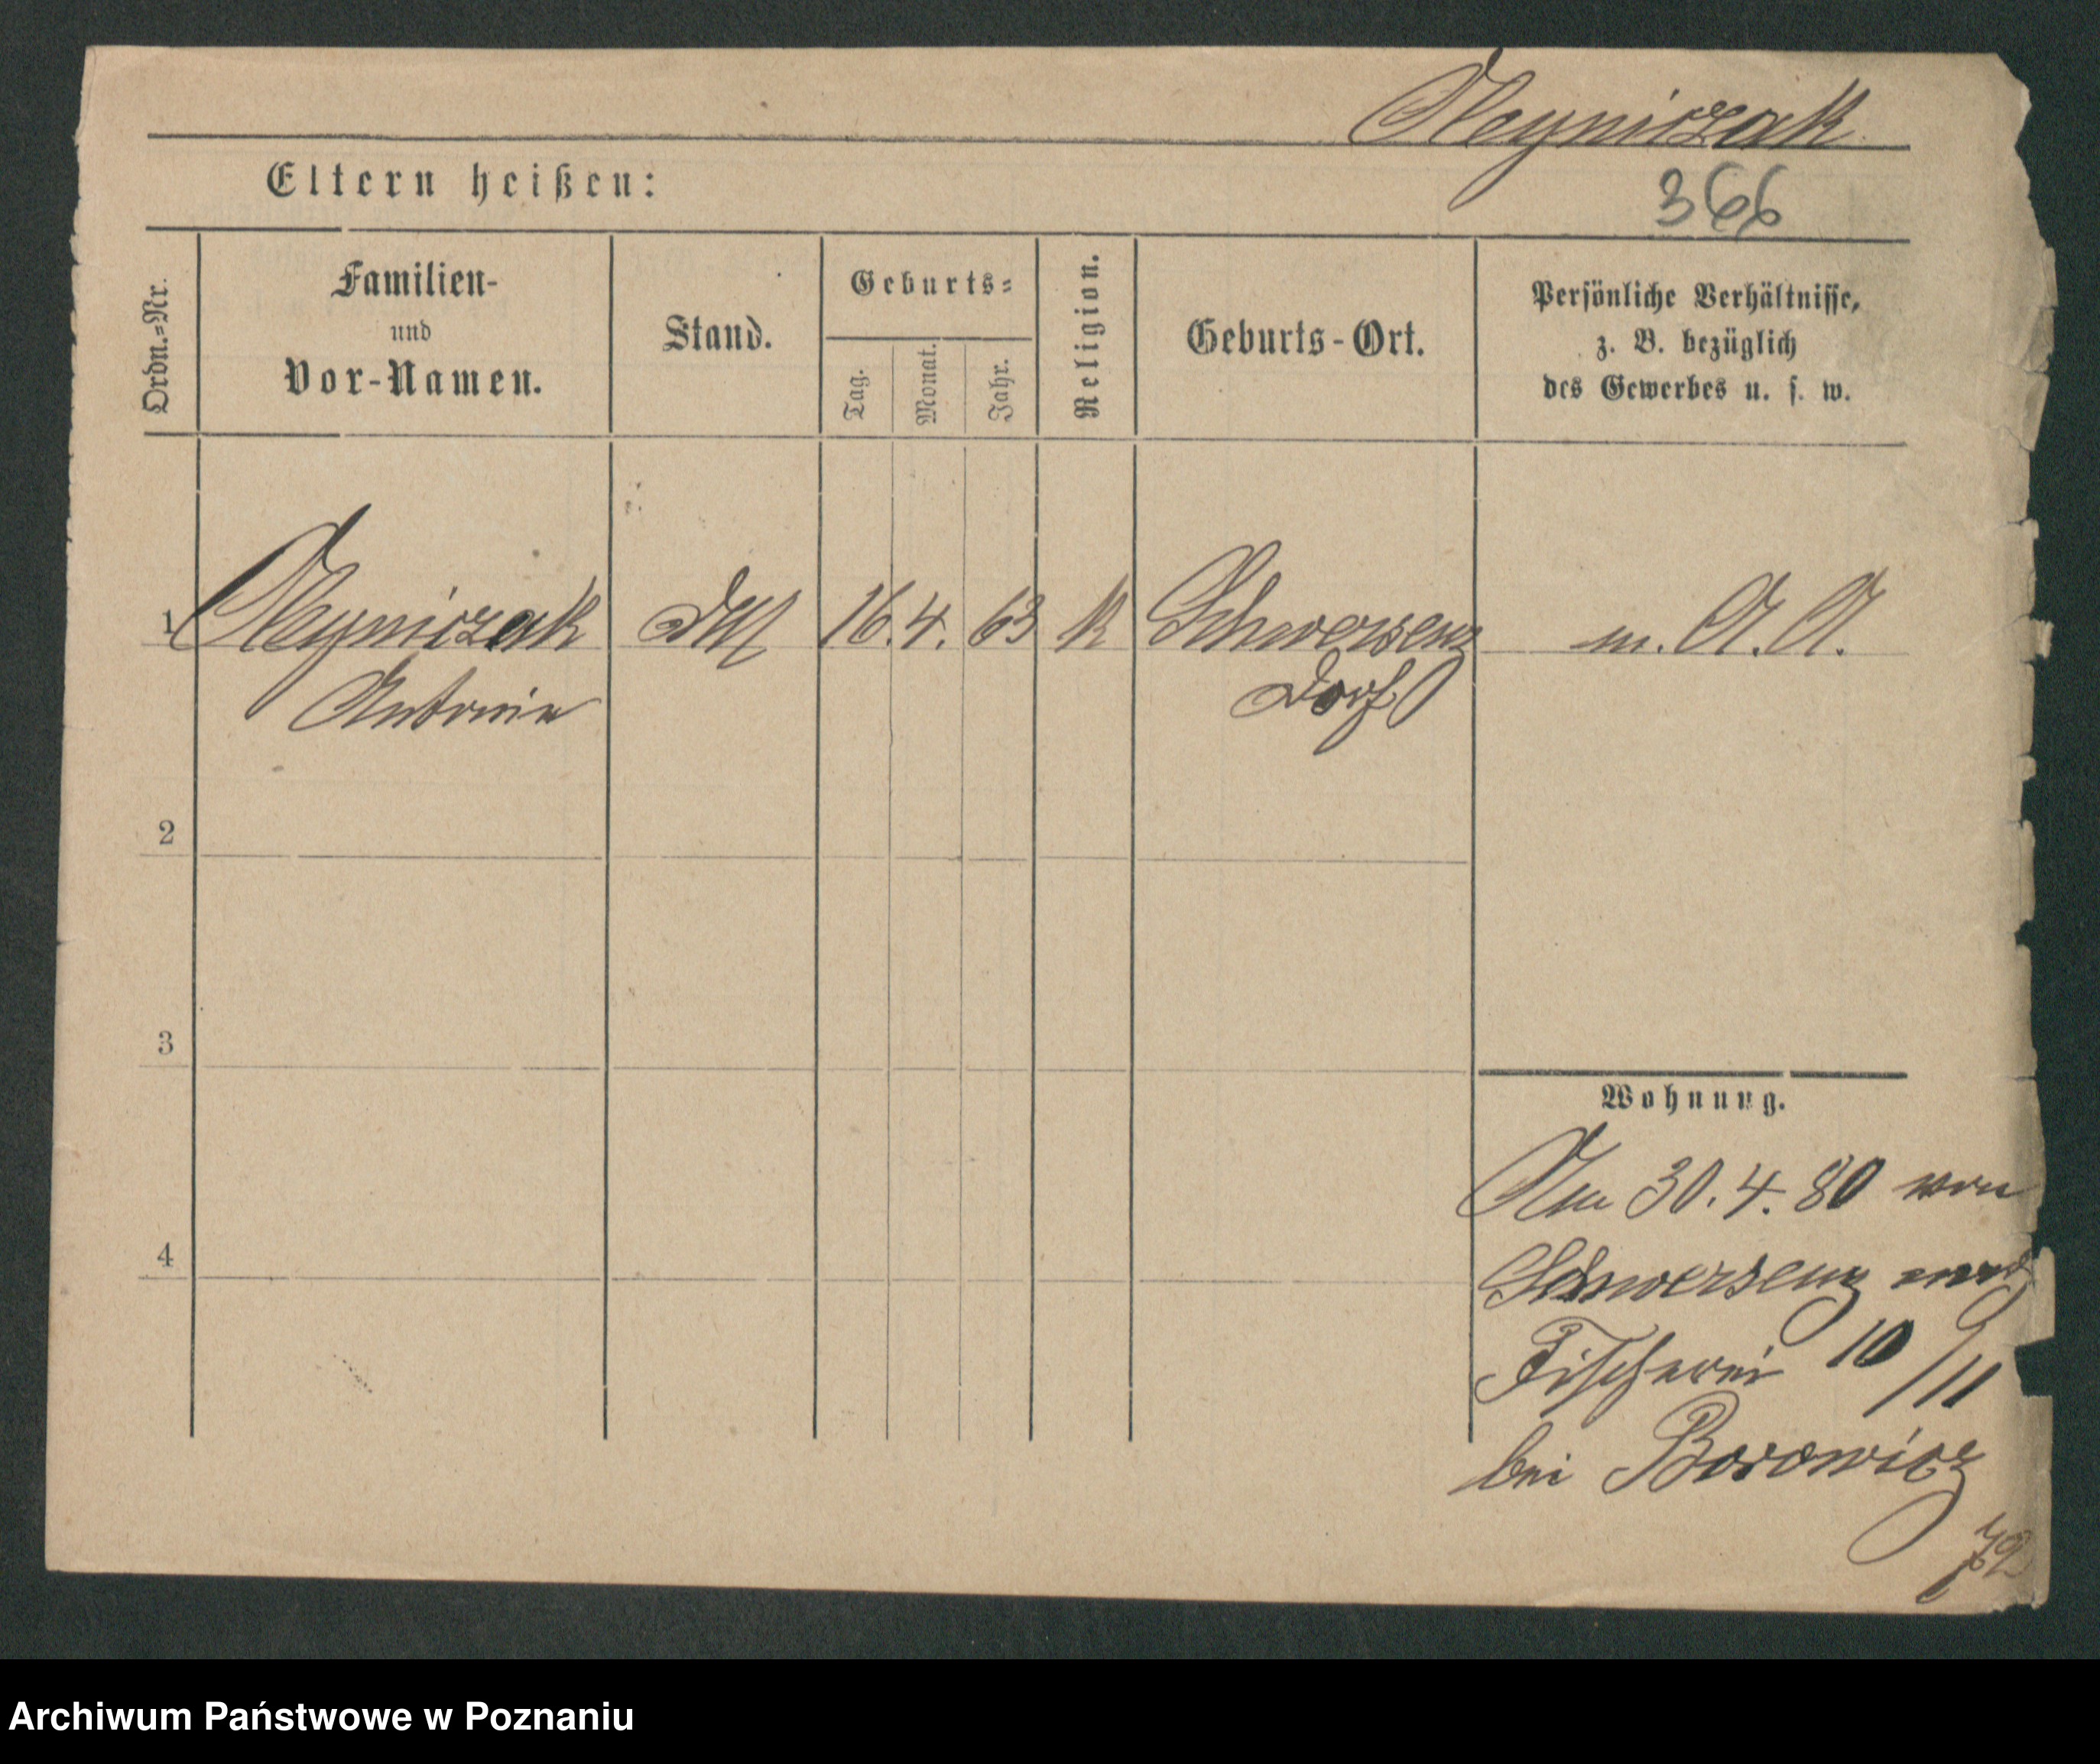 Heyniczak
366
Eltern heißen:
Ordn.=Nr.
Familien-
und
Vor-Namen.
Stand.
Geburts=
Tag.
Monat.
Jahr.
Religion.
Geburts-Ort.
Persönliche Verhältnisse,
z. B. bezüglich
des Gewerbes u. s. w.
1 Heyniczak 16. 4. 63 K Schwersenz m. A. A.
Antonie
Dorf
2
3
4
Wohnung.
Am 30. 4. 80 von
Schwersenz nach
Fischerei 10/11
bei Borowicz
Archiwum Państwowe w Poznaniu